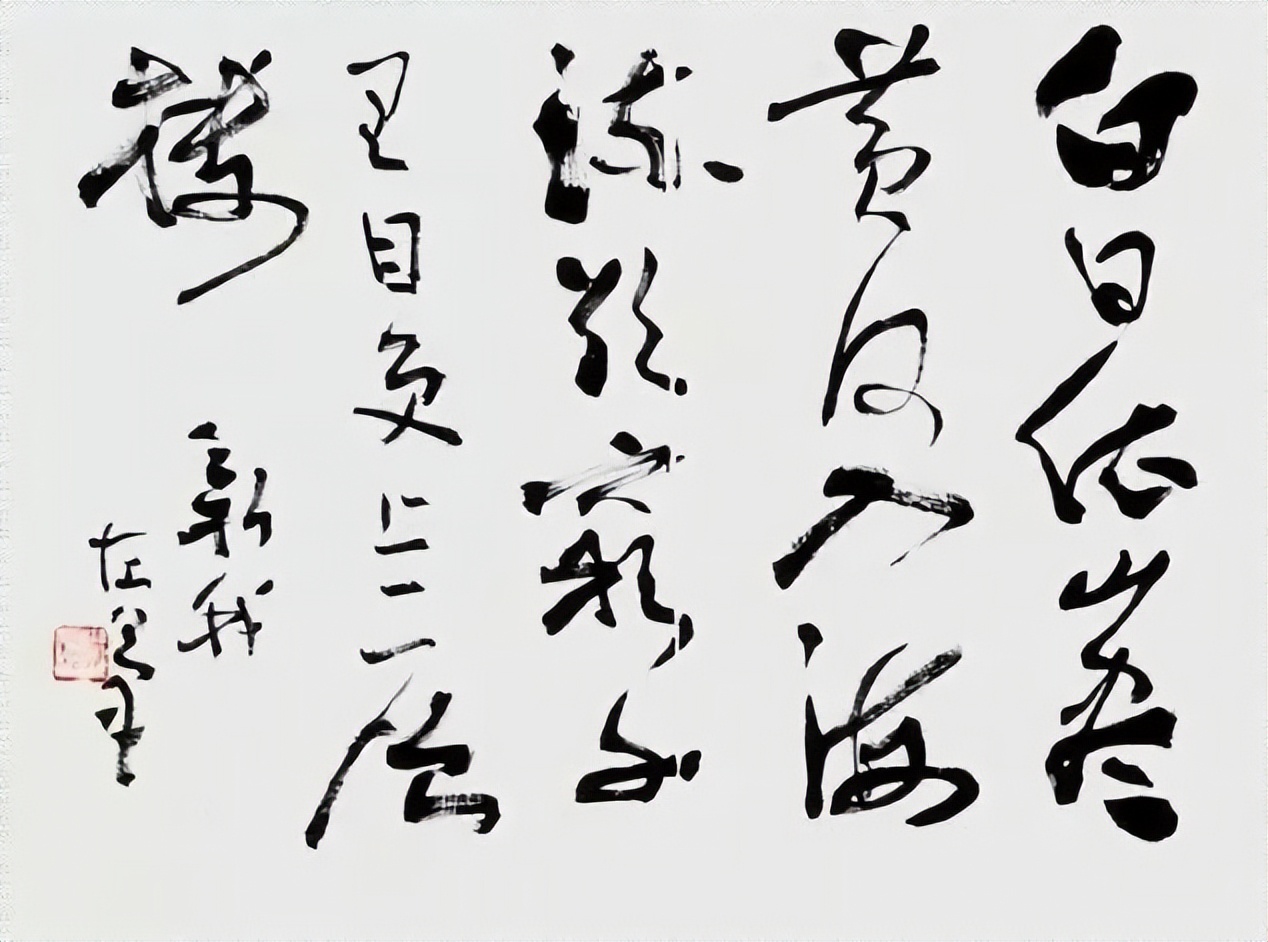 白日依山尽
黄河入海
流欲窮千
里目更上二层
楼
新我
左筆